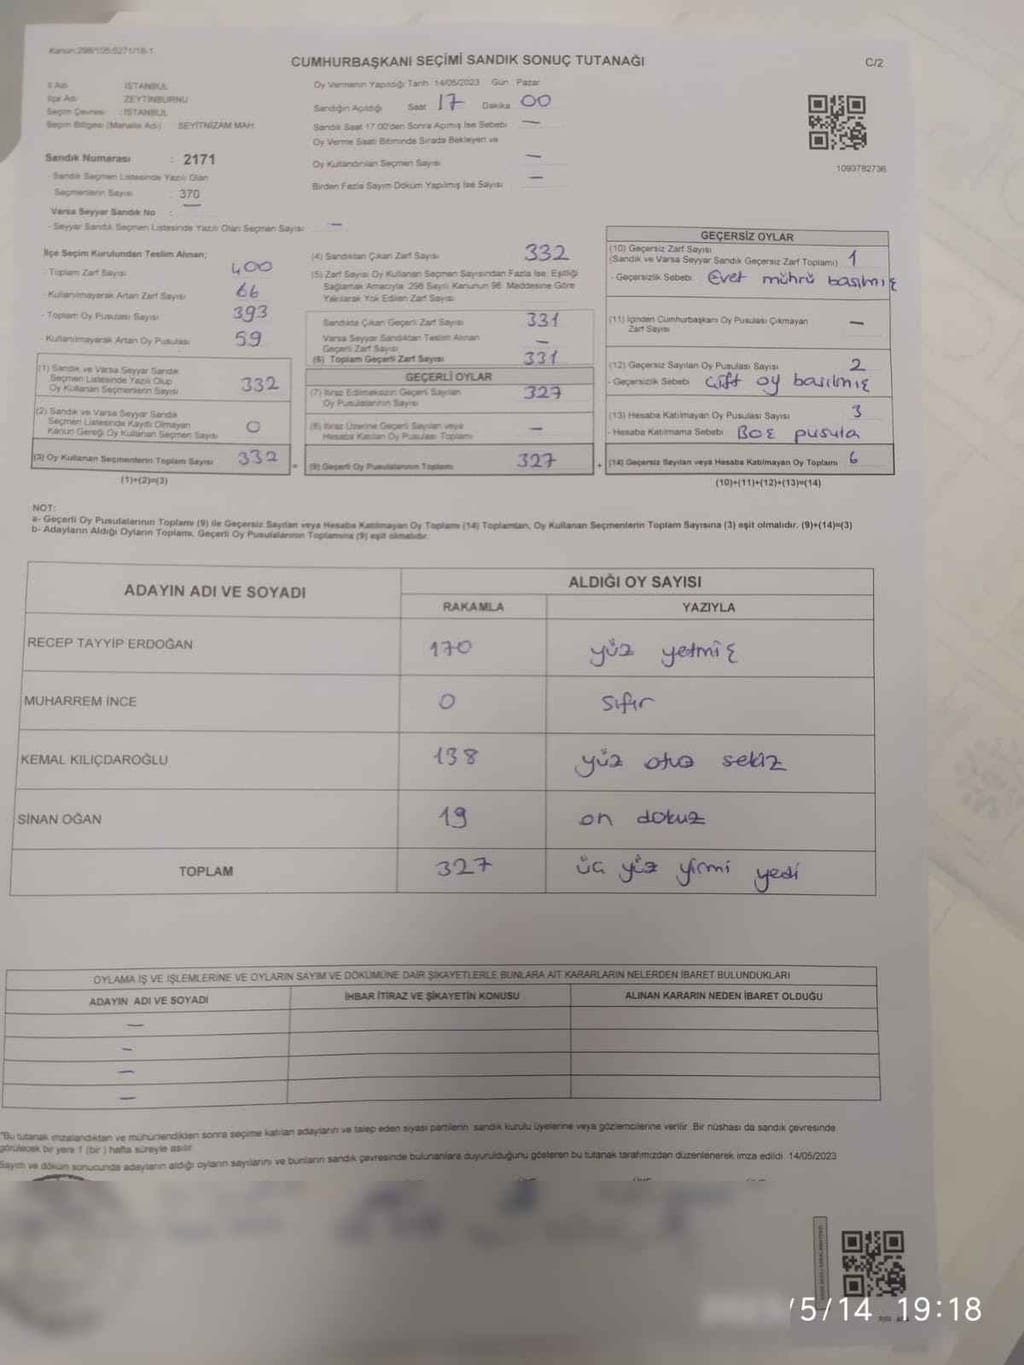 Kanun:298/105:5271/18-1
CUMHURBAŞKANI SEÇİMİ SANDIK SONUÇ TUTANAĞI
C/2
İl Adı : İSTANBUL
İlçe Adı : ZEYTİNBURNU
Seçim Çevresi : İSTANBUL
Seçim Bölgesi (Mahalle Adı) SEYİTNİZAM MAH.
Sandık Numarası : 2171
- Sandık Seçmen Listesinde Yazılı Olan
Seçmenlerin Sayısı : 370
Varsa Seyyar Sandık No : —
- Seyyar Sandık Seçmen Listesinde Yazılı Olan Seçmen Sayısı —
Oy Vermenin Yapıldığı Tarih 14/05/2023 Gün : Pazar
Sandığın Açıldığı Saat 17 Dakika 00
Sandık Saat 17.00'den Sonra Açımış İse Sebebi —
Oy Verme Saati Bitiminde Sırada Bekleyen ve
Oy Kullandırılan Seçmen Sayısı —
Birden Fazla Sayım Döküm Yapılmış İse Sayısı —
1093782736
İlçe Seçim Kurulundan Teslim Alınan;
- Toplam Zarf Sayısı 400
- Kullanılmayarak Artan Zarf Sayısı 66
- Toplam Oy Pusulası Sayısı 393
- Kullanılmayarak Artan Oy Pusulası 59
(1) Sandık ve Varsa Seyyar Sandık
Seçmen Listesinde Yazılı Olup
Oy Kullanan Seçmenlerin Sayısı 332
(2) Sandık ve Varsa Seyyar Sandık
Seçmen Listesinde Kayıtlı Olmayan
Kanun Gereği Oy Kullanan Seçmen Sayısı 0
(3) Oy Kullanan Seçmenlerin Toplam Sayısı 332
(1)+(2)=(3)
(4) Sandıktan Çıkan Zarf Sayısı 332
(5) Zarf Sayısı Oy Kullanan Seçmen Sayısından Fazla İse, Eşitliği
Sağlamak Amacıyla 298 Sayılı Kanunun 98. Maddesine Göre
Yakılarak Yok Edilen Zarf Sayısı
Sandıkta Çıkan Geçerli Zarf Sayısı 331
Varsa Seyyar Sandıktan Teslim Alınan
Geçerli Zarf Sayısı —
(6) Toplam Geçerli Zarf Sayısı 331
GEÇERLİ OYLAR
(7) İtiraz Edilmeksizin Geçerli Sayılan
Oy Pusulalarının Sayısı 327
(8) İtiraz Üzerine Geçerli Sayılan veya
Hesaba Katılan Oy Pusulası Toplamı —
= (9) Geçerli Oy Pusulalarının Toplamı 327
GEÇERSİZ OYLAR
(10) Geçersiz Zarf Sayısı
(Sandık ve Varsa Seyyar Sandık Geçersiz Zarf Toplamı) 1
- Geçersizlik Sebebi: Evet mührü basılmış
(11) İçinden Cumhurbaşkanı Oy Pusulası Çıkmayan
Zarf Sayısı —
(12) Geçersiz Sayılan Oy Pusulası Sayısı 2
- Geçersizlik Sebebi Çift oy basılmış
(13) Hesaba Katılmayan Oy Pusulası Sayısı 3
- Hesaba Katılmama Sebebi Boş pusula
+ (14) Geçersiz Sayılan veya Hesaba Katılmayan Oy Toplamı 6
(10)+(11)+(12)+(13)=(14)
NOT:
a- Geçerli Oy Pusulalarının Toplamı (9) ile Geçersiz Sayılan veya Hesaba Katılmayan Oy Toplamı (14) Toplamları, Oy Kullanan Seçmenlerin Toplam Sayısına (3) eşit olmalıdır. (9)+(14)=(3)
b- Adayların Aldığı Oyların Toplamı, Geçerli Oy Pusulalarının Toplamına (9) eşit olmalıdır.
ADAYIN ADI VE SOYADI
ALDIĞI OY SAYISI
RAKAMLA YAZIYLA
RECEP TAYYİP ERDOĞAN 170 yüz yetmiş
MUHARREM İNCE 0 sıfır
KEMAL KILIÇDAROĞLU 138 yüz otuz sekiz
SİNAN OĞAN 19 on dokuz
TOPLAM 327 üç yüz yirmi yedi
OYLAMA İŞ VE İŞLEMLERİNE VE OYLARIN SAYIM VE DÖKÜMÜNE DAİR ŞİKAYETLERLE BUNLARA AİT KARARLARIN NELERDEN İBARET BULUNDUKLARI
ADAYIN ADI VE SOYADI İHBAR İTİRAZ VE ŞİKAYETİN KONUSU ALINAN KARARIN NEDEN İBARET OLDUĞU
—
—
—
—
"Bu tutanak imzalandıktan ve mühürlendikten sonra seçime katılan adayların ve talep eden siyasi partilerin sandık kurulu üyelerine veya gözlemcilerine verilir. Bir nüshası da sandık çevresinde
görülecek bir yere 1 (bir) hafta süreyle asılır.
Sayım ve döküm sonucunda adayların aldığı oyların sayılarını ve bunların sandık çevresinde bulunanlara duyurulduğunu gösteren bu tutanak tarafımızdan düzenlenerek imza edildi. 14/05/2023
/5/14 19:18